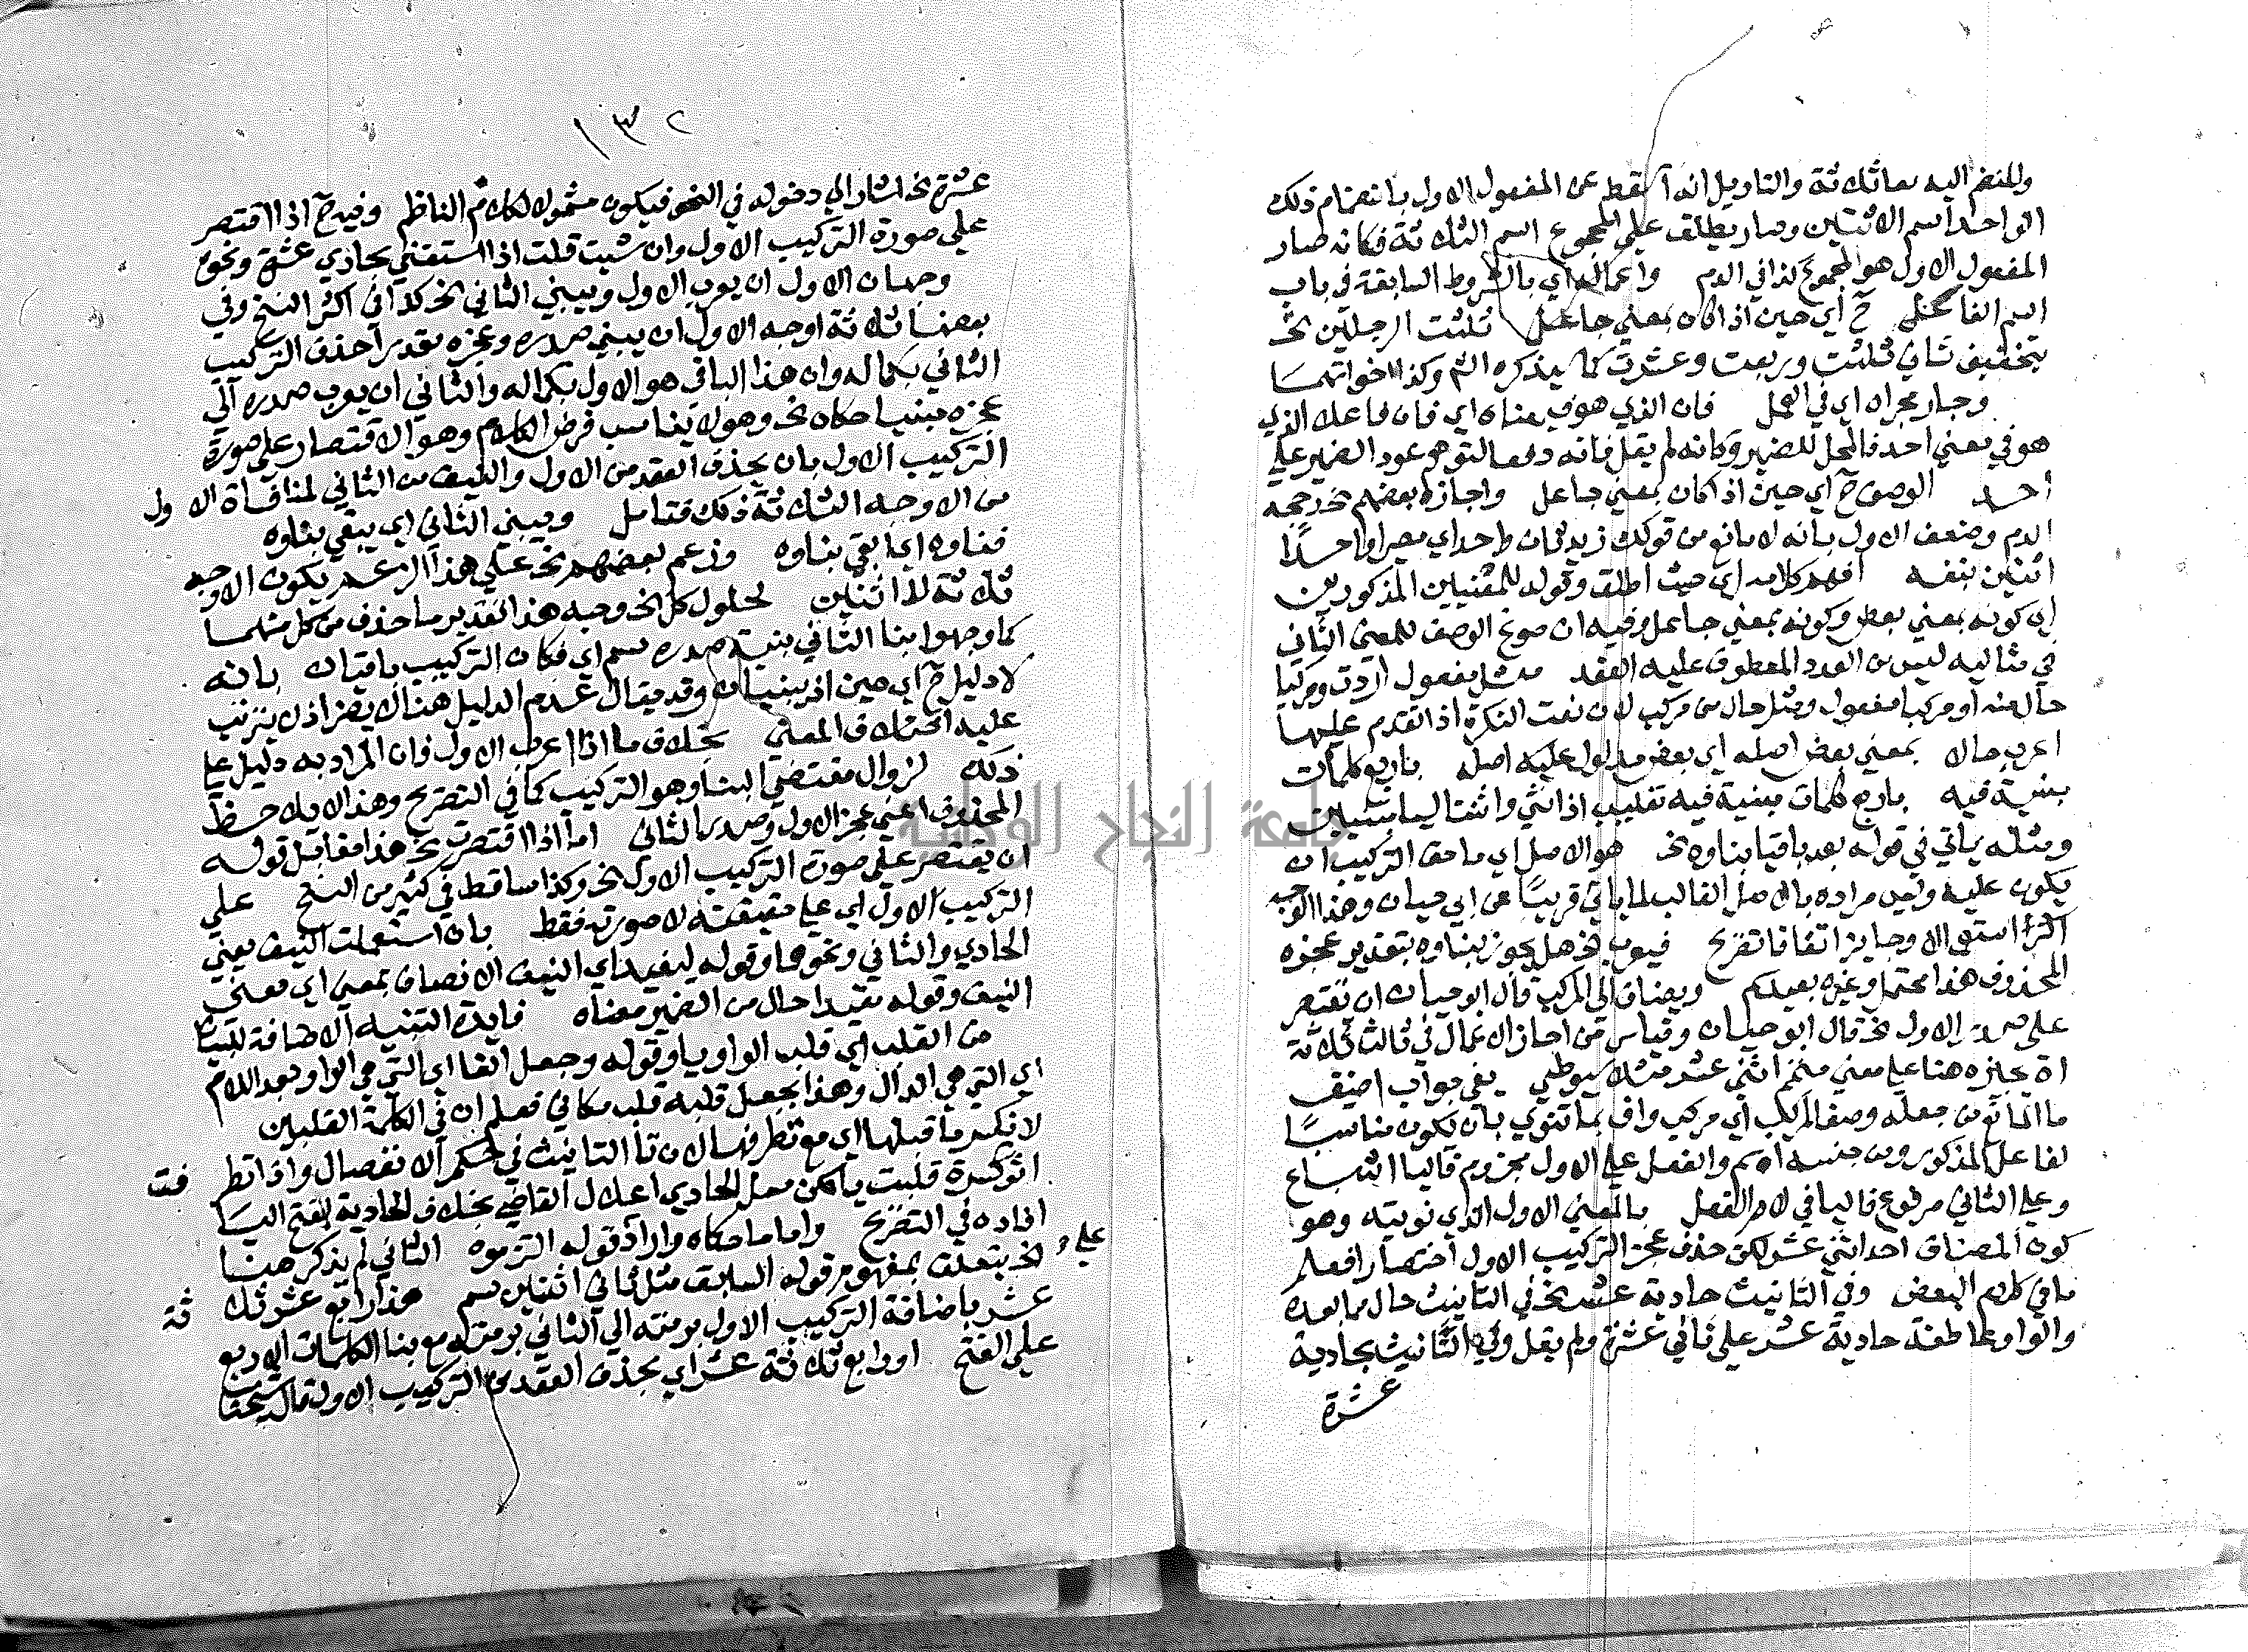 وللمنضم اليه معا ثلاثة والتاويل انه اسقط عن المفعول الاول بانضمام ذلك
الواحد اسم الاثنين وصار يطلق على المجموع اسم الثلاثة فكانه صار
المفعول الاول هو المجموع كذا في الدم واعماله اي بالشروط السابقة في باب
اسم الفاعل ح اي حين اذ كان بمعني جاعل ثلثت الرجلين نخ
بتخفيف ثاني ثلثت وربعت وعشرت كما يذكره الشم وكذا اخواتهما
وجار مجراه اي في العمل فان الذي هو في معناه اي فان فاعلا الذي
هو في معني احد فالمحل للضمير وكانه لم يقل فانه دفعا لتوهم عود الضمير على
احد الوصف ح اي حين اذ كان بمعني جاعل واجازه بعضهم نخ رجحه
الدم وضعف الاول بانه لا مانع من قولك زيد ثان واحدا اي مصير واحدا
اثنين بنفسه افهم كلامه اي حيث اطلق وقوله للمعنيين المذكورين
اي كونه بمعني بعض وكونه بمعني جاعل وفيه ان صوغ الوصف للمعني الثاني
في مثاليه ليس من العدد المعطوف عليه العقد مثل مفعول اردت ومركبا
حال منه او مركبا مفعول ومثل حال من مركب لان نعت النكرة اذا تقدم عليها
اعرب حالا بمعني بعض اصله اي بعض مدلول عليه اصله باربع كلمات
مبنية فيه باربع كلمات مبنية فيه تغليب اذ اثني واثنتا ليسا مبنيين
ومثله ياتي في قوله بعد باقيا بناوه نخ هو الاصل اي ما حق التركيب ان
يكون عليه وليس مراده بالاصل الغالب لما ياتي قريبا عن ابي حيان وهذا الوجه
اكثر استعمالا وجايز اتفاقا تصريح فيعرب نخ هل يجوز بناوه بتقدير عجزه
المحذوف هذا محتمل وغيره بعيد كم ويضاف الى المركب قال ابو حيان ان تقتصر
على صدر الاول نخ قال ابو حيان وقياس من اجاز الاعمال في ثالث ثلاثة
ان يجيزه هنا على معني متمم اثني عشر مثلا سيوطي يفي جواب اضف
ما المانع من جعله وصفا لمركب اي مركب واف بما تنوي بان يكون مناسبا
لفاعل المذكور ومن جنسه اه سم والفعل على الاول مجزوم فاليا اشباع
وعلى الثاني مرفوع فاليا في لام الفعل بالمعني الاول الذي نويته وهو
كون المضاف احد اثني عشر لكن حذف عجز التركيب الاول اختصارا فعلم
ما في كلام البعض وفي التانيث حادية عشر نخ في التانيث حال مما بعده
والواو عاطفة حادية عشر على ثاني عشرة ولم يقل وفي التانيث بحادية
عشرة
١٣٢
عشرة نخ اشار الى دخوله في النحو فيكون مشمولا لكلام الناظم وفيه ح اذا اقتصر
على صورة التركيب الاول وان شيت قلت اذا استغني بحادي عشر ونحوه
وجهان الاول ان يعرب الاول ويبني الثاني نخ كذا في اكثر النسخ وفي
بعضها ثلاثة اوجه الاول ان يبني صدره وعجزه مقدرا حذف التركيب
الثاني بكماله وان هذا الباقي هو الاول بكماله والثاني ان يعرب صدره الى
عجزه مبنيا حكاه نخ وهو لا يناسب فرض الكلام وهو الاقتصار على صورة
التركيب الاول بان يحذف العقد من الاول والنيف من الثاني لمنافاة الاول
من الاوجه الثلاثة ذلك فتامل ويبني الثاني اي يبقي بناوه
فبناوه اي ابقي بناوه وزعم بعضهم نخ على هذا الزعم يكون الاوجه
ثلاثة لا اثنين لحلول كل نخ وجه هذا تقدير ما حذف من كل منهما
كما وجهوا بنا الثاني بنية صدره سم اي فكان التركيب باقيان بانه
لا دليل ح اي حين اذ يبنيان وقد يقال عدم الدليل هنا لا يضر اذ لن يترتب
عليه اختلاف المعني بخلاف ما اذا اعرب الاول فان المراد به دليل على
ذلك لزوال مقتضي البنا وهو التركيب كما في التصريح وهذا الا يلاحظ
المحذوف اعني عجز الاول وصدر الثاني اما اذا اقتصرت نخ هذا مقابل قوله
ان يقتصر على صورة التركيب الاول نخ وكذا ساقط في كثير من النسخ على
التركيب الاول اي على حقيقته لا صورته فقط بان استعملت النيف يعني
الحادي والثاني ونحوهما وقوله ليفيد اي النيف الاتصاف بمعني اي معني
النيف وقوله مقيدا حال من الضمير معناه فايدة التنبيه الاضافة للبيان
من القلب اي قلب الواو يا وقوله وجعل الفا اي التي هي الواو بعد اللام
اي التي هي الدال وهذا يجعل قلبه قلب مكاني فعلم ان في الكلمة القلبين
لانكسر ما قبلها اي مع تطرفها لان تا التانيث في حكم الانفصال واذا تطرفت
اثر كسرة قلبت يا لكن معل الحادي اعلال القاضي بخلاف الحادية لفتح اليا
افاده في التصريح واما ما حكاه واراد قوله التزموه الثاني لم يذكر هنا
نخ يتعلق بمفهوم قوله السابق مثل ثاني اثنين سم هذا رابع عشر ثلاثة
عشر باضافة التركيب الاول برمته الى الثاني برمته مع بنا الكلمات الاربع
على الفتح او رابع ثلاثة عشر اي بحذف العقد من التركيب الاول قال شيخنا